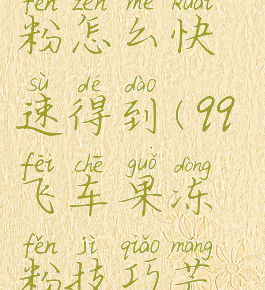 fěn zěn me kuài
粉怎么快
sù dé dào
速得到(99
fēi chē guǒ dòng
飞车果冻
fěn jì qiǎo máng
粉技巧芒